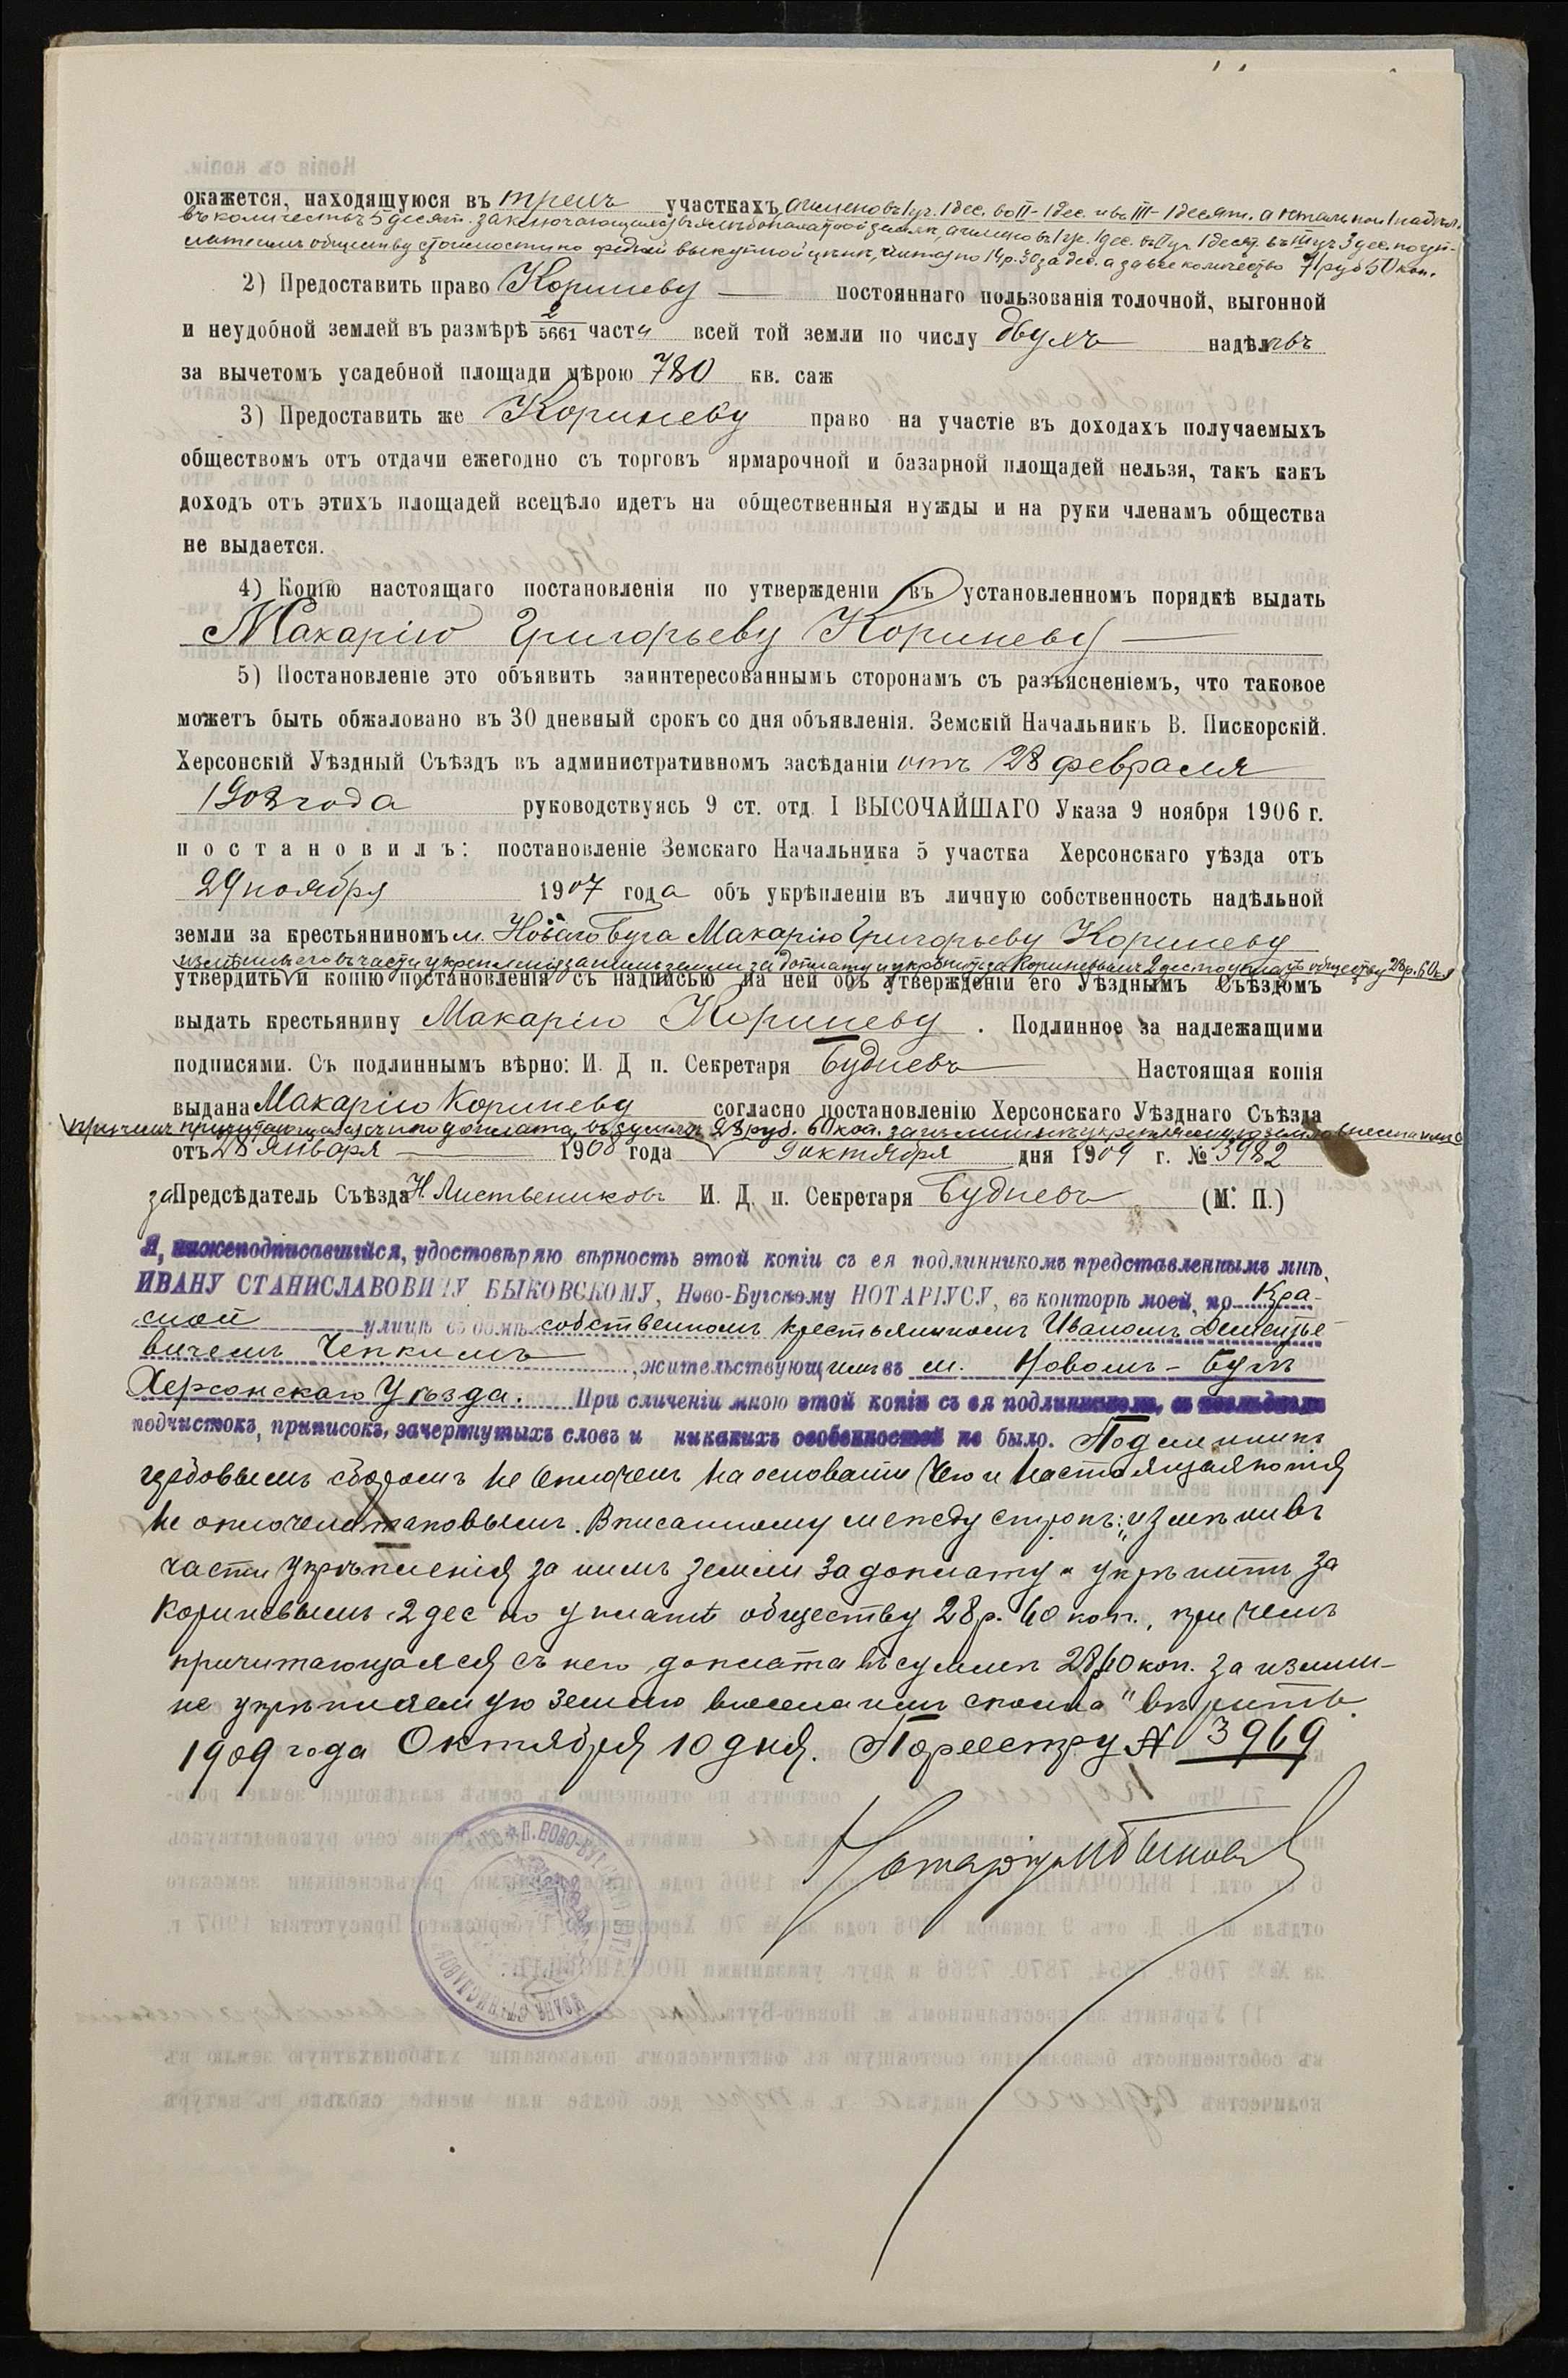 окажется, находящуюся въ трехъ участкахъ, а именно въ I уч. 1 дес. во II - 1 дес. и въ III - 1 десят. а остальной 1 надѣлъ
въ количествѣ 5 десят. заключающійся въ хлѣбопахатной землѣ, а имено въ I уч. 1 дес. въ II уч. 1 десят. въ III уч 3 дес. по уп-
латѣ имъ обществу стоимости по средней выкупной цѣнѣ, считая по 14 р. 30 за дес. а за все количество 71 руб 50 коп.
2) Предоставить право Кориневу постояннаго пользованія толочной, выгонной
и неудобной землей въ размѣрѣ 2/5661 части всей той земли по числу двухъ надѣловъ
за вычетомъ усадебной площади мѣрою 780 кв. саж
3) Предоставить же Кориневу право на участіе въ доходахъ получаемыхъ
обществомъ отъ отдачи ежегодно съ торговъ ярмарочной и базарной площадей нельзя, такъ какъ
доходъ отъ этихъ площадей всецѣло идетъ на общественныя нужды и на руки членамъ общества
не выдается.
4) Копію настоящаго постановленія по утвержденіи въ установленномъ порядкѣ выдать
Макарію Григорьеву Кориневу
5) Постановленіе это объявить заинтересованнымъ сторонамъ съ разъясненіемъ, что таковое
можетъ быть обжаловано въ 30 дневный срокъ со дня объявленія. Земскій Начальникъ В. Пискорскій.
Херсонскій Уѣздный Съѣздъ въ административномъ засѣданіи отъ 28 февраля
1908 года руководствуясь 9 ст. отд. I ВЫСОЧАЙШАГО Указа 9 ноября 1906 г.
постановилъ: постановленіе Земскаго Начальника 5 участка Херсонскаго уѣзда отъ
29 ноября 1907 года объ укрѣпленіи въ личную собственность надѣльной
земли за крестьяниномъ м. Новаго Буга Макарію Григорьеву Кориневу
измѣнивъ его въ части укрепленія за нимъ земли за доплату и укрѣпить за Кориневымъ 2 дес по уплатѣ обществу 28 р. 60 к.
утвердить и копію постановленія съ надписью на ней объ утвержденіи его Уѣзднымъ Съѣздомъ
выдать крестьянину Макарію Кориневу. Подлинное за надлежащими
подписями. Съ подлиннымъ вѣрно: И. Д п. Секретаря Будневъ Настоящая копія
выдана Макарію Кориневу согласно постановленію Херсонскаго Уѣзднаго Съѣзда
при чемъ причитающаяся съ него доплата, въ суммѣ 28 руб. 60 коп. за излишнѣ укрепляемую землю внесена имъ
отъ 28 января 1908 года 9 октября дня 1909 г. № 3982
за Предсѣдатель Съѣзда Н. Листвениковъ И. Д. п. Секретаря Будневъ (М. П.)
Я, нижеподписавшійся, удостовѣряю вѣрность этой копіи съ ея подлинникомъ представленнымъ мнѣ,
ИВАНУ СТАНИСЛАВОВИЧУ БЫКОВСКОМУ, Ново-Бугскому НОТАРІУСУ, въ конторѣ моей, по Кра-
сной улицѣ въ домѣ собственномъ крестьяниномъ Иваномъ Дементье-
вичемъ Чепкимъ, жительствующимъ въ м. Новомъ-Бугѣ
Херсонскаго Уѣзда. При сличеніи мною этой копіи съ ея подлинникомъ, въ послѣднемъ
подчистокъ, приписокъ, зачеркнутыхъ словъ и никакихъ особенностей не было. Подлинникъ
гербовымъ сборомъ не оплоченъ на основаніи чего и настоящая копія
не оплочена таковымъ. Вписанному между строкъ: "измѣнивъ
части укрѣпленія за нимъ земли за доплату и укрѣпить за
Кориневымъ 2 дес по уплатѣ обществу 28 р. 60 коп., при чемъ
причитающаяся съ него доплата въ суммѣ 28 р 60 коп. за излиш-
не укрѣпляемую землю внесена имъ сполна" вѣрить.
1909 года Октября 10 дня. По реестру № 3969
Нотаріусъ И Быковскій